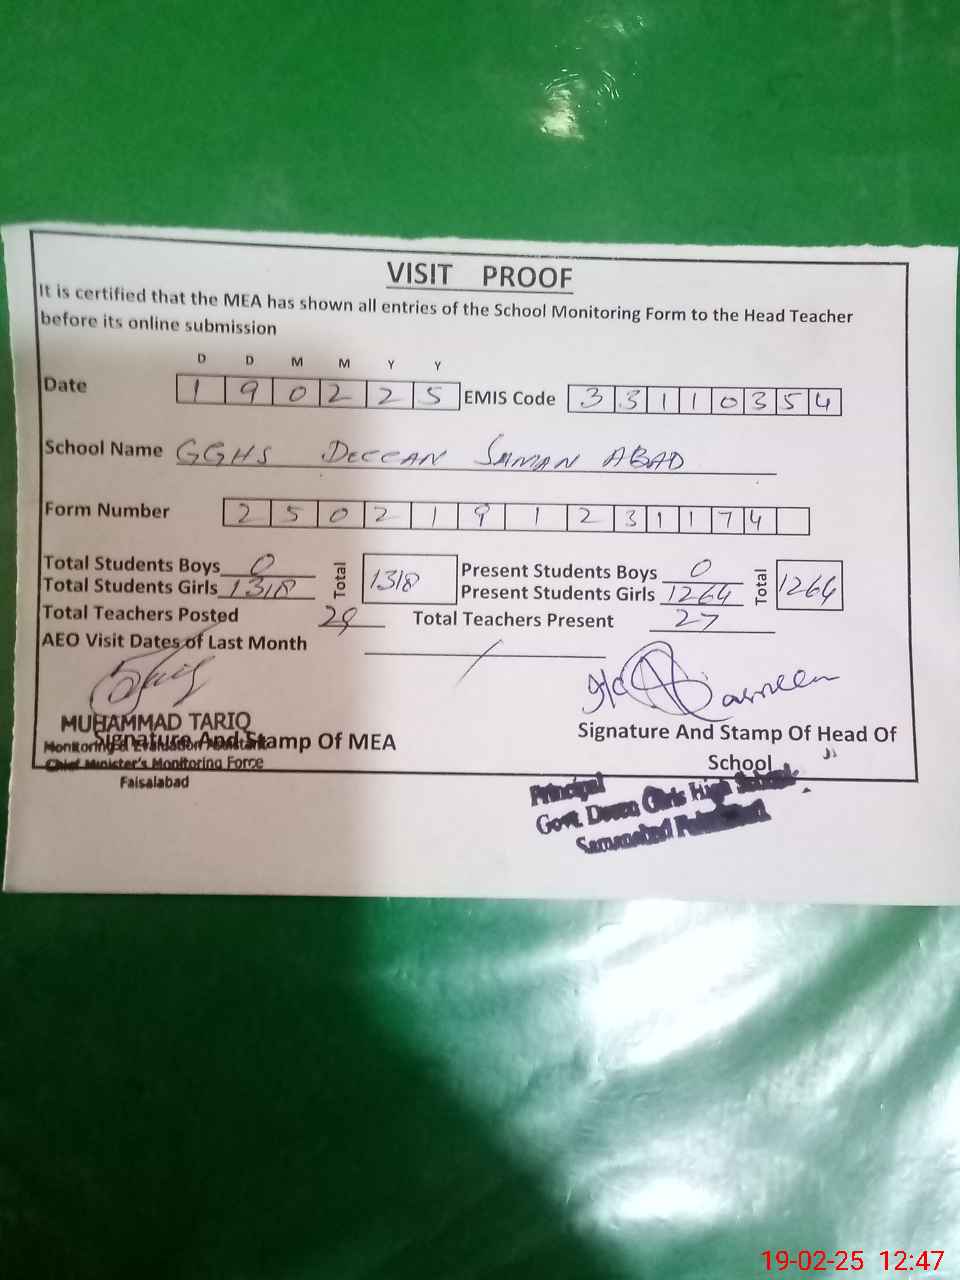 VISIT PROOF
It is certified that the MEA has shown all entries of the School Monitoring Form to the Head Teacher
before its online submission
D D M M Y Y
Date 1 9 0 2 2 5 EMIS Code 3 3 1 1 0 3 5 4
School Name GGHS DECCAN SAMAN ABAD
Form Number 2 5 0 2 1 9 1 2 3 1 1 7 4
Total Students Boys 0 Total 1318 Present Students Boys 0 Total 1264
Total Students Girls 1318 Present Students Girls 1264
Total Teachers Posted 29 Total Teachers Present 27
AEO Visit Dates of Last Month
MUHAMMAD TARIQ
Signature And Stamp Of MEA
Monitoring & Evaluation Assistant
Chief Minister's Monitoring Force
Faisalabad
Signature And Stamp Of Head Of
School
Principal
Govt. Deccan Girls High School
Samanabad
19-02-25 12:47